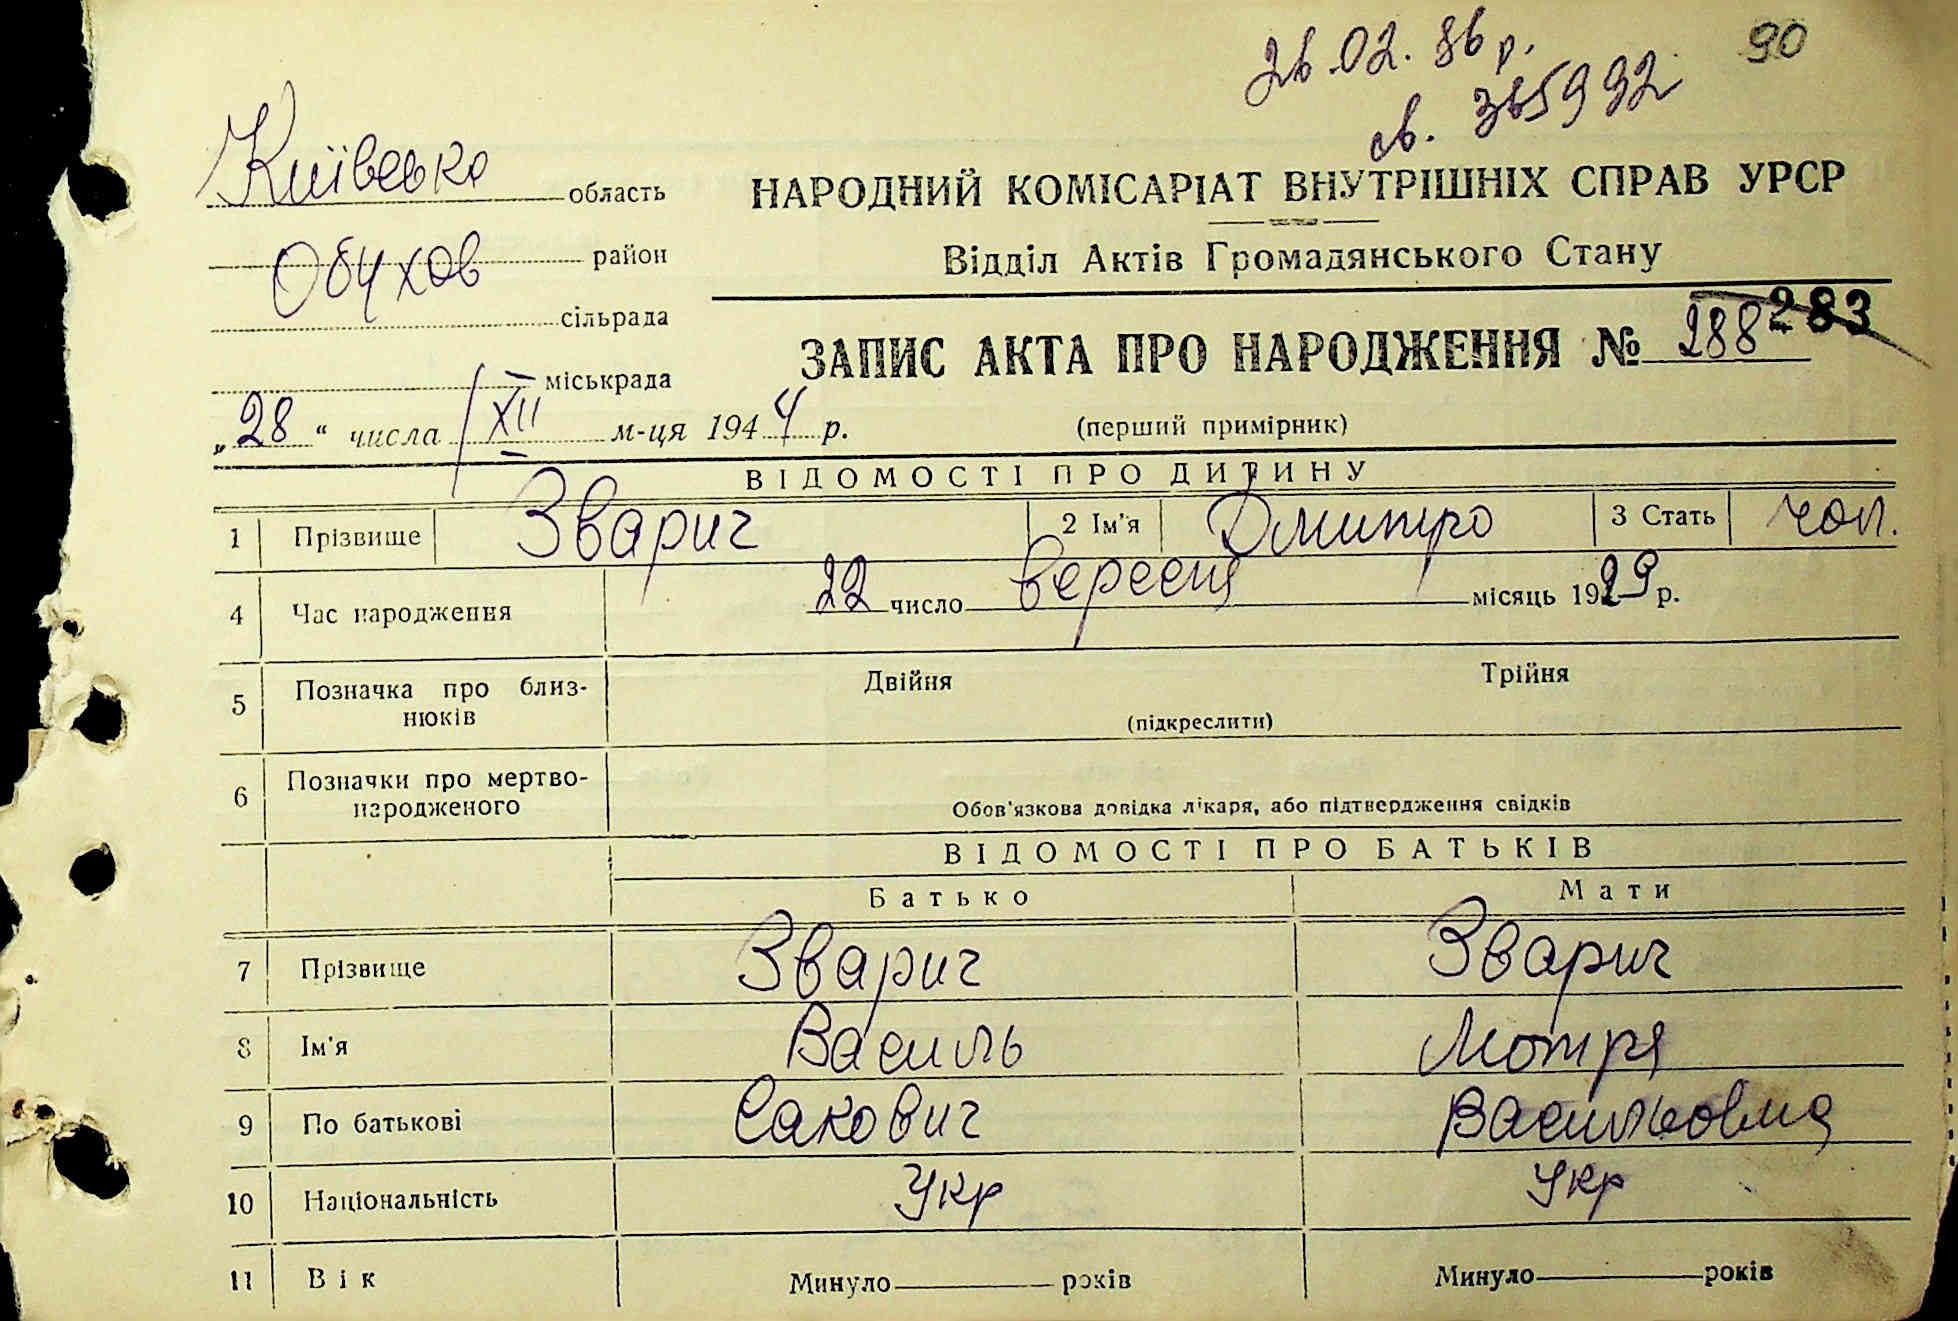 26.02.86 р.
90
св. 365992
Київська область
НАРОДНИЙ КОМІСАРІАТ ВНУТРІШНІХ СПРАВ УРСР
Обухов район
Відділ Актів Громадянського Стану
сільрада
283
ЗАПИС АКТА ПРО НАРОДЖЕННЯ № 288
міськрада
„28“ числа XII м-ця 1944 р.
(перший примірник)
ВІДОМОСТІ ПРО ДИТИНУ
1 Прізвище Зварич 2 Ім'я Дмитро 3 Стать чол.
4 Час народження 22 число вересня місяць 1929 р.
5 Позначка про близнюків Двійня Трійня
(підкреслити)
6 Позначки про мертвонародженого
Обов'язкова довідка лікаря, або підтвердження свідків
ВІДОМОСТІ ПРО БАТЬКІВ
Батько Мати
7 Прізвище Зварич Зварич
8 Ім'я Василь Мотря
9 По батькові Сакович Васильовна
10 Національність Укр Укр
11 Вік Минуло років Минуло років